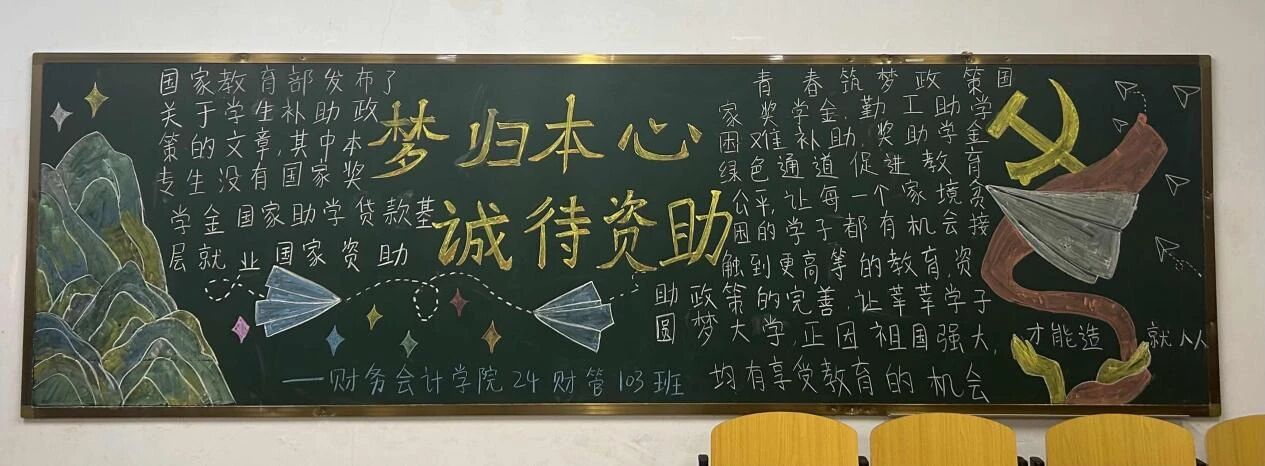 国家教育部发布了
关于学生补助政
策的文章,其中本
专生没有国家奖
学金国家助学贷款基
层就业国家资助
梦归本心
诚待资助
——财务会计学院24财管103班
青春筑梦政策国
家奖学金,勤工助学
困难补助,奖助学金
绿色通道促进教育
公平,让每一个家境贫
困的学子都有机会接
触到更高等的教育,资
助政策的完善,让莘莘学子
圆梦大学,正因祖国强大,才能造就人人
均有享受教育的机会